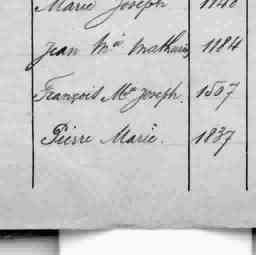 Marie Joseph 1140
Jean Mie Mathurin 1184
François Mie Joseph. 1507
Pierre Marie. 1837